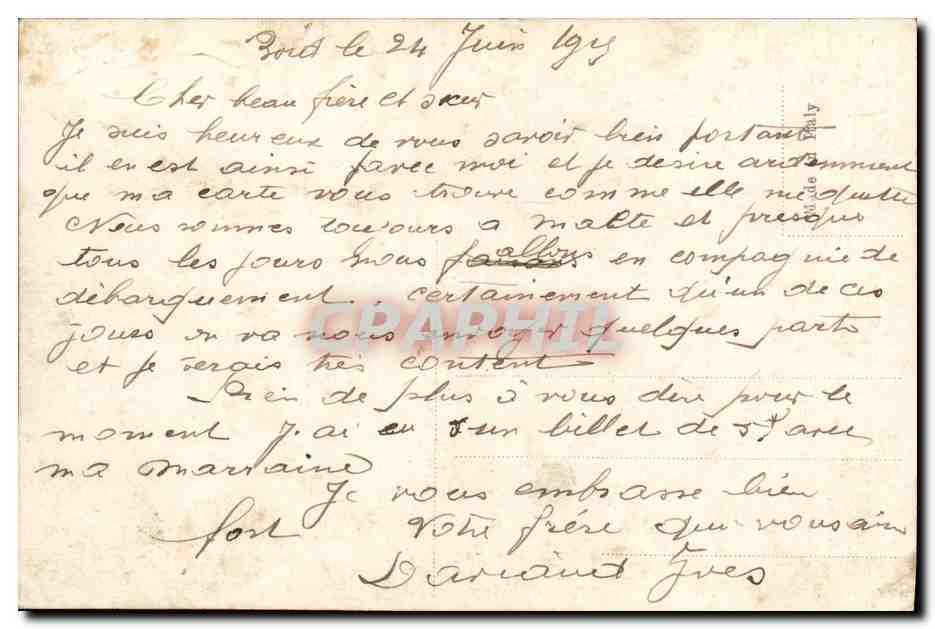 Bord le 24 Juin 1915
Cher beau frère et sœur
Je suis heureux de vous savoir bien portant
il en est ainsi avec moi et je desire ardemment
que ma carte vous trouve comme elle me quitte
Nous sommes toujours a Malte et presque
tous les jours nous allons en compagnie de
débarquement. certainement qu'un de ces
jours on va nous envoyer quelques parts
et je serais très content
Rien de plus à vous dire pour le
moment J'ai eu un billet de 5f avec
ma marraine
Je vous embrasse bien
fort Votre frère qui vous aime
Yves
CPAPHIL